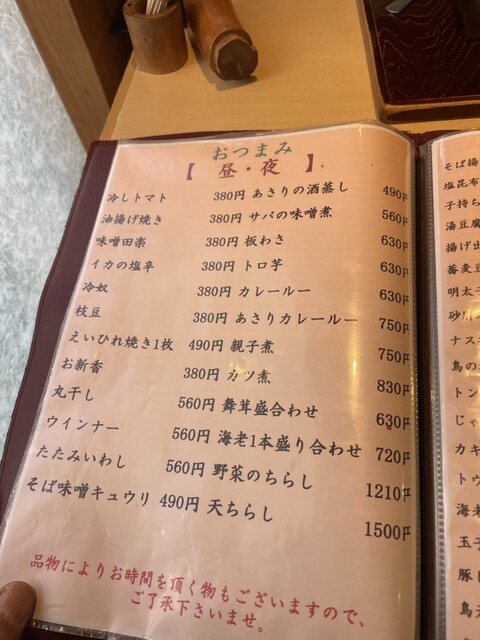 おつまみ
【 昼・夜 】
冷しトマト 380円 あさりの酒蒸し 490円
油揚げ焼き 380円 サバの味噌煮 560円
味噌田楽 380円 板わさ 630円
イカの塩辛 380円 トロ芋 630円
冷奴 380円 カレールー 630円
枝豆 380円 あさりカレールー 750円
えいひれ焼き1枚 490円 親子煮 750円
お新香 380円 カツ煮 830円
丸干し 560円 舞茸盛合わせ 630円
ウインナー 560円 海老1本盛り合わせ 720円
たたみいわし 560円 野菜のちらし 1210円
そば味噌キュウリ 490円 天ちらし 1500円
品物によりお時間を頂く物もございますので、
ご了承下さいませ。
そば揚
塩昆布
子持ち
湯豆腐
揚げ出
蕎麦豆
明太子
ナス
鳥の
トン
じゃ
カキ
トウ
海老
玉子